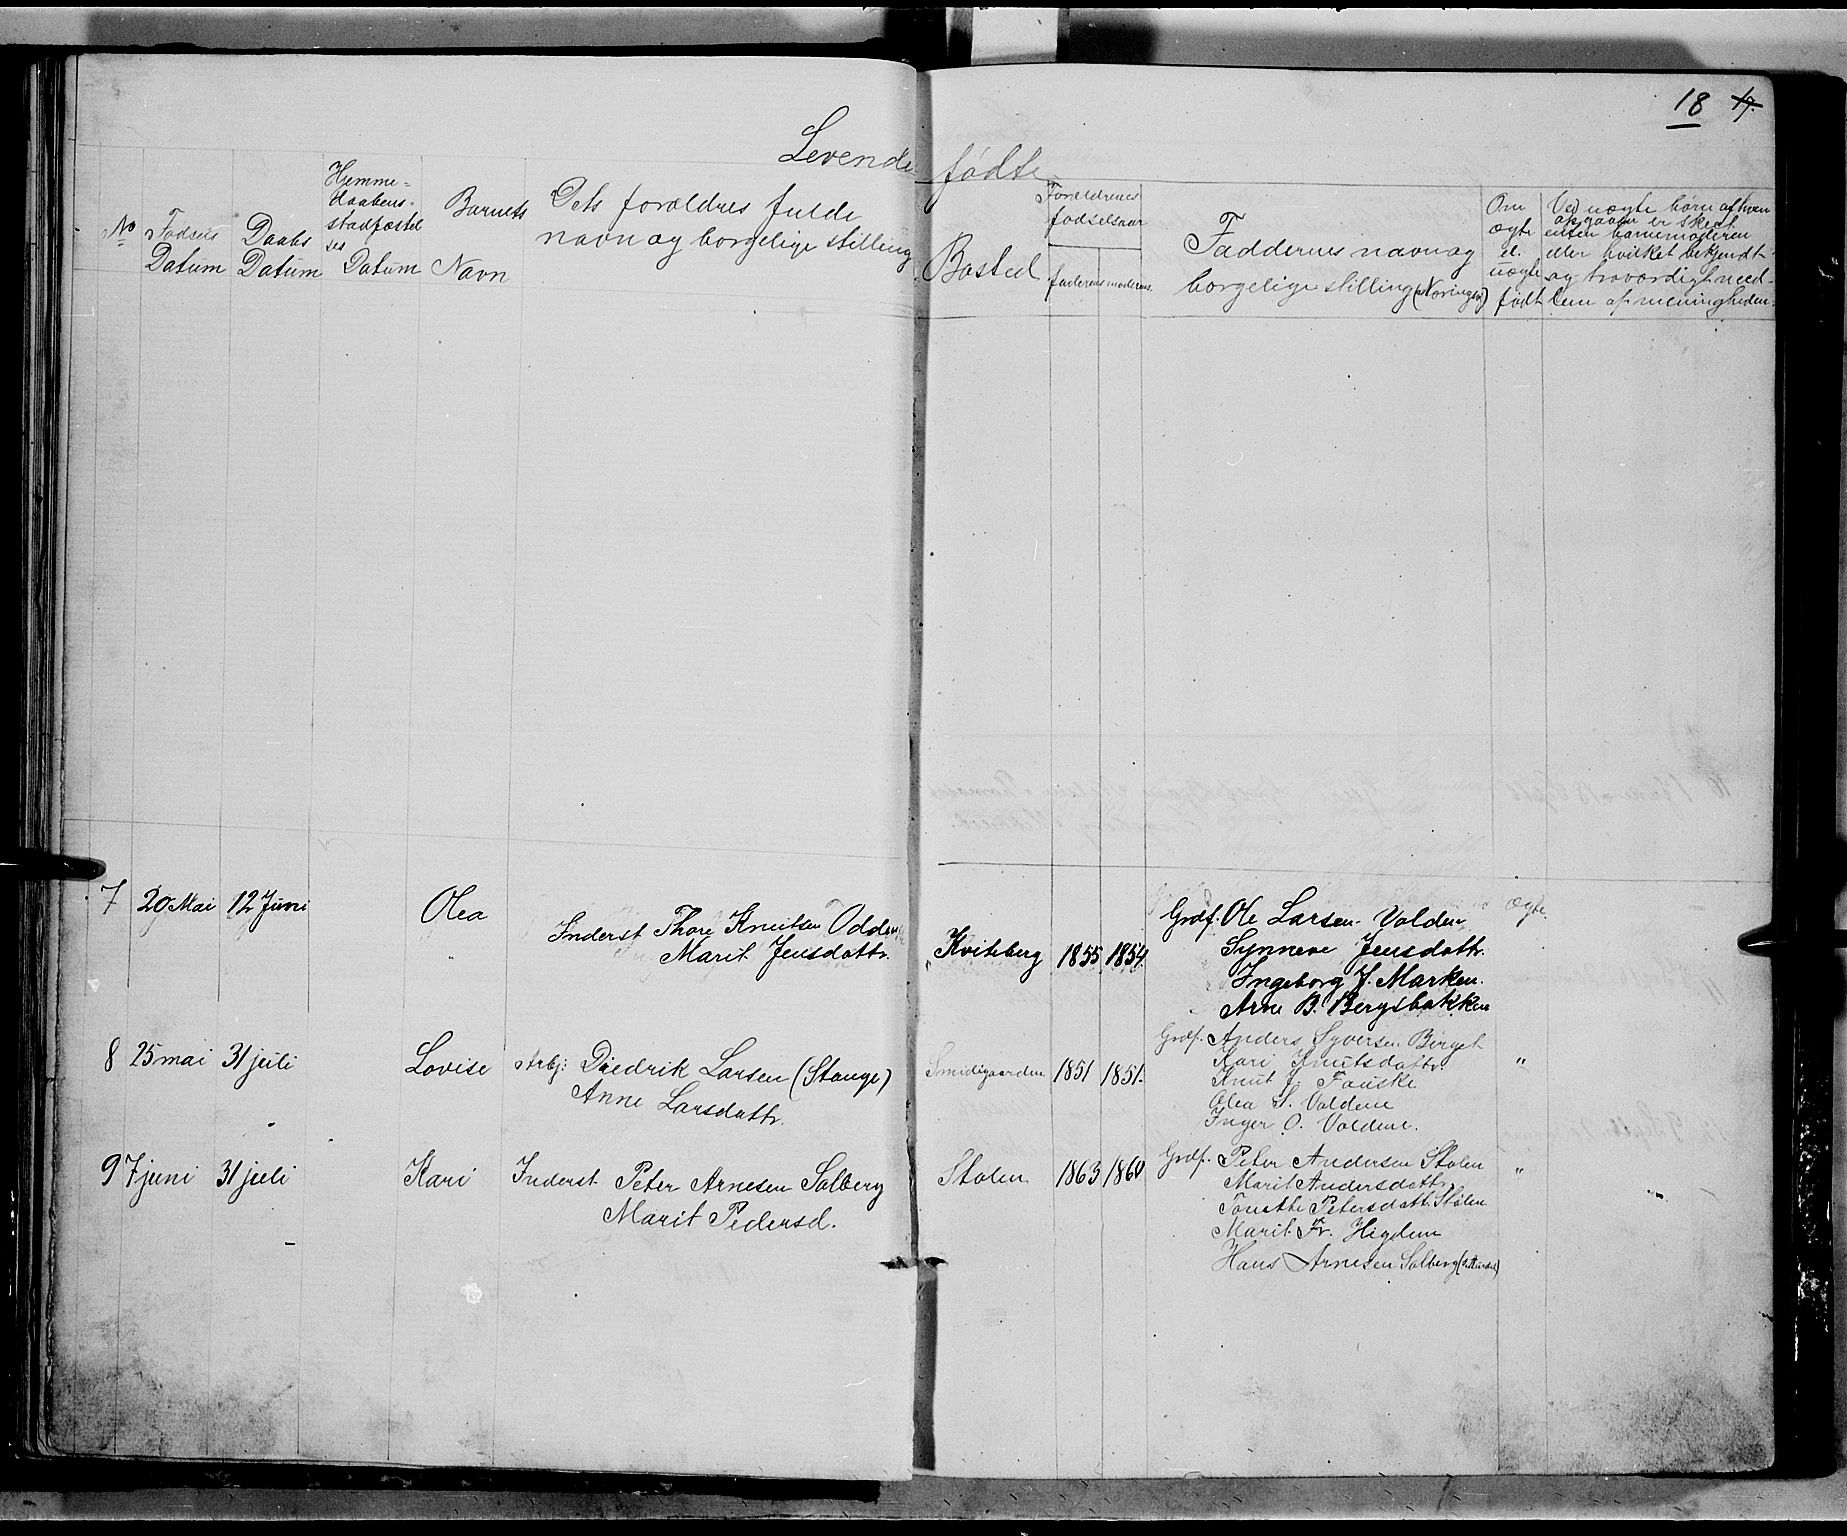 18 17.
Levende fødte
No
Fødsels Datum
Daabs Datum
Hjemme=
daabens
stadfæstel
ses
Datum
Barnets
Navn
Dets forældres fulde
navn og borgelige stilling
Bosted
Forældrenes
fødselsaar
faderens moderens
Faddernes navn og
borgelige stilling (Næringsv)
Om
ægte
el.
uægte
født
Ved uægte børn af hvem
opgaven er skeet
enten barnemoderen
eller hvilket bekjendt
og troværdigt med-
lem af menigheden.
7 20 Mai 12 Juni Olea
Inderst Thore Knutsen Odden
Marit Jensdattr.
Kviteberg 1855 1854.
Grdf. Ole Larsen Volden
Synneve Jensdattr.
Ingeborg J. Marken.
Arne B. Bergsbakken
Ægte.
8 25 mai 31 juli Lovise Arbj: Diedrik Larsen (Stange)
Anne Larsdattr.
Smidigaarden 1851 1851.
Grdf. Anders Syversen Birget
Kari Knutsdattr.
Knut J. Fauske
Olea S. Voldene
Inger O. Voldene.
"
9 7 juni 31 juli Kari Inderst Peter Arnesen Solberg
Marit Pedersd.
Stølen 1863 1860
Grdf. Peter Andersen Stølen
Marit Andersdattr.
Tonette Petersdatt. Stølen
Marit Fr. Higdem
Hans Arnesen Solberg
"